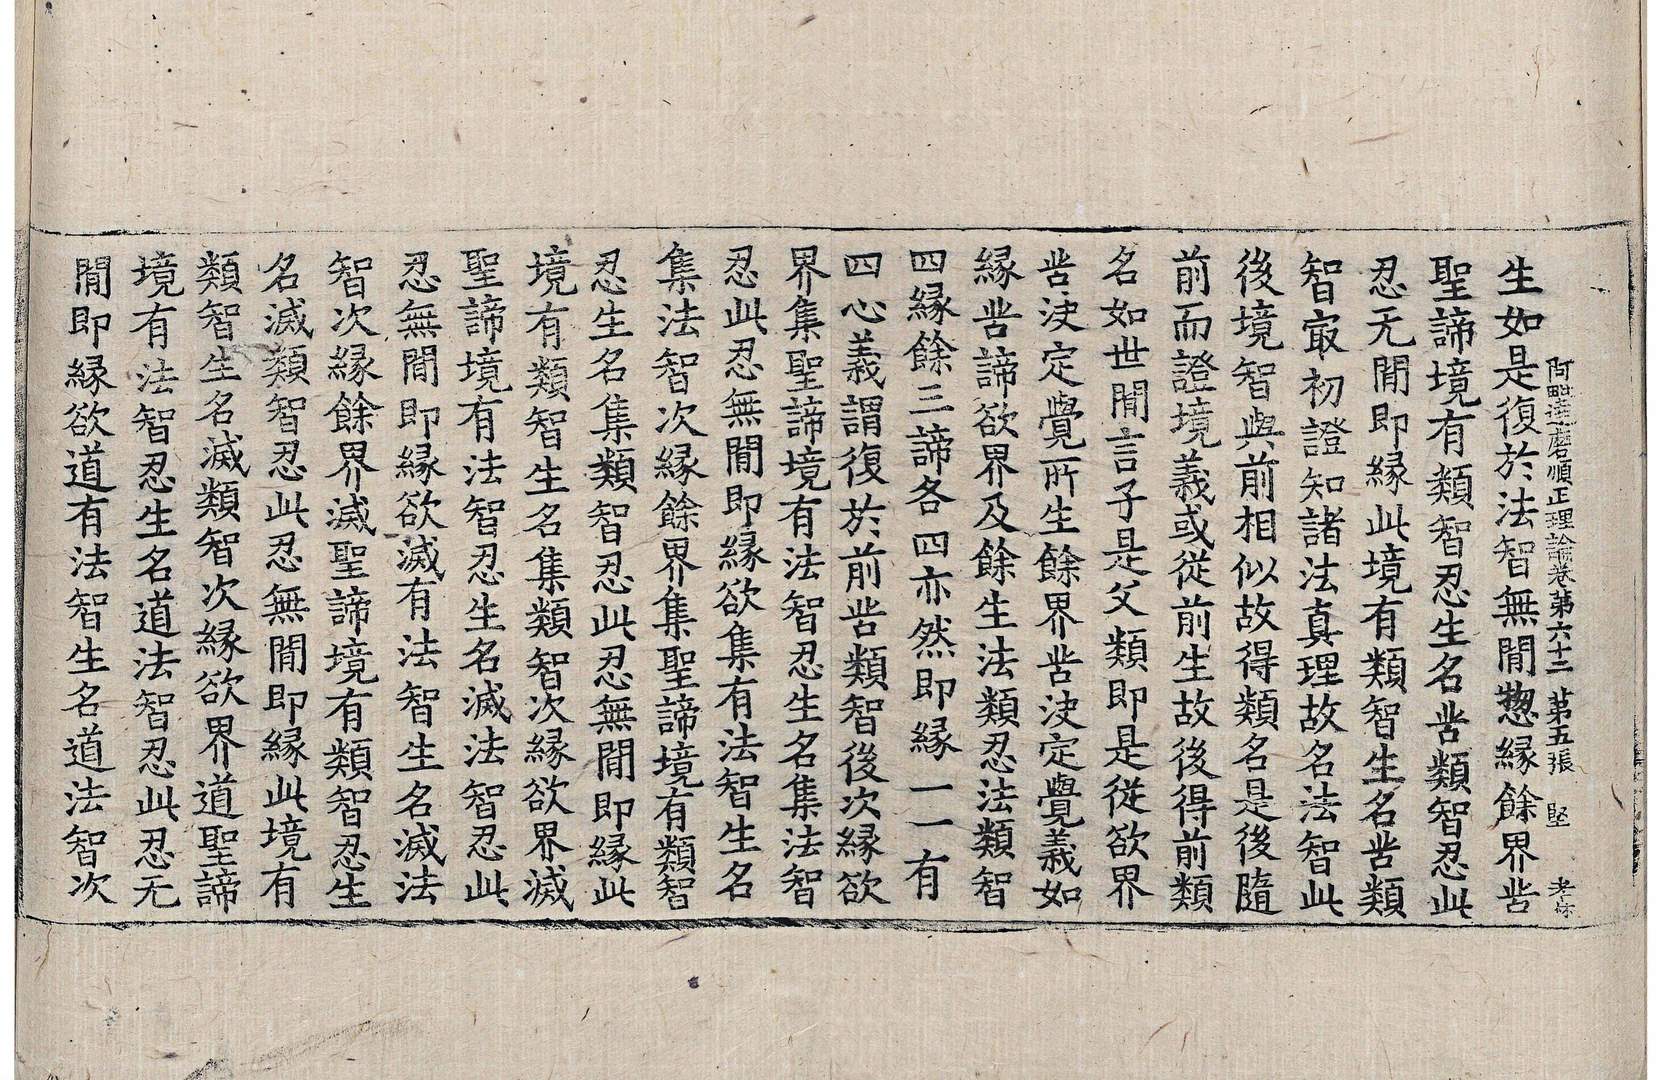 阿毗達磨順正理論卷第六十二 第五張 堅
生如是復於法智無閒惣縁餘界苦
聖諦境有類智忍生名苦類智忍此
忍无閒即縁此境有類智生名苦類
智㝡初證知諸法真理故名法智此
後境智與前相似故得類名是後隨
前而證境義或從前生故後得前類
名如世閒言子是父類即是從欲界
苦決定覺所生餘界苦決定覺義如
縁苦諦欲界及餘生法類忍法類智
四縁餘三諦各四亦然即縁一一有
四心義謂復於前苦類智後次縁欲
界集聖諦境有法智忍生名集法智
忍此忍無閒即縁欲集有法智生名
集法智次縁餘界集聖諦境有類智
忍生名集類智忍此忍無閒即縁此
境有類智生名集類智次縁欲界滅
聖諦境有法智忍生名滅法智忍此
忍無閒即縁欲滅有法智生名滅法
智次縁餘界滅聖諦境有類智忍生
名滅類智忍此忍無閒即縁此境有
類智生名滅類智次縁欲界道聖諦
境有法智忍生名道法智忍此忍无
閒即縁欲道有法智生名道法智次